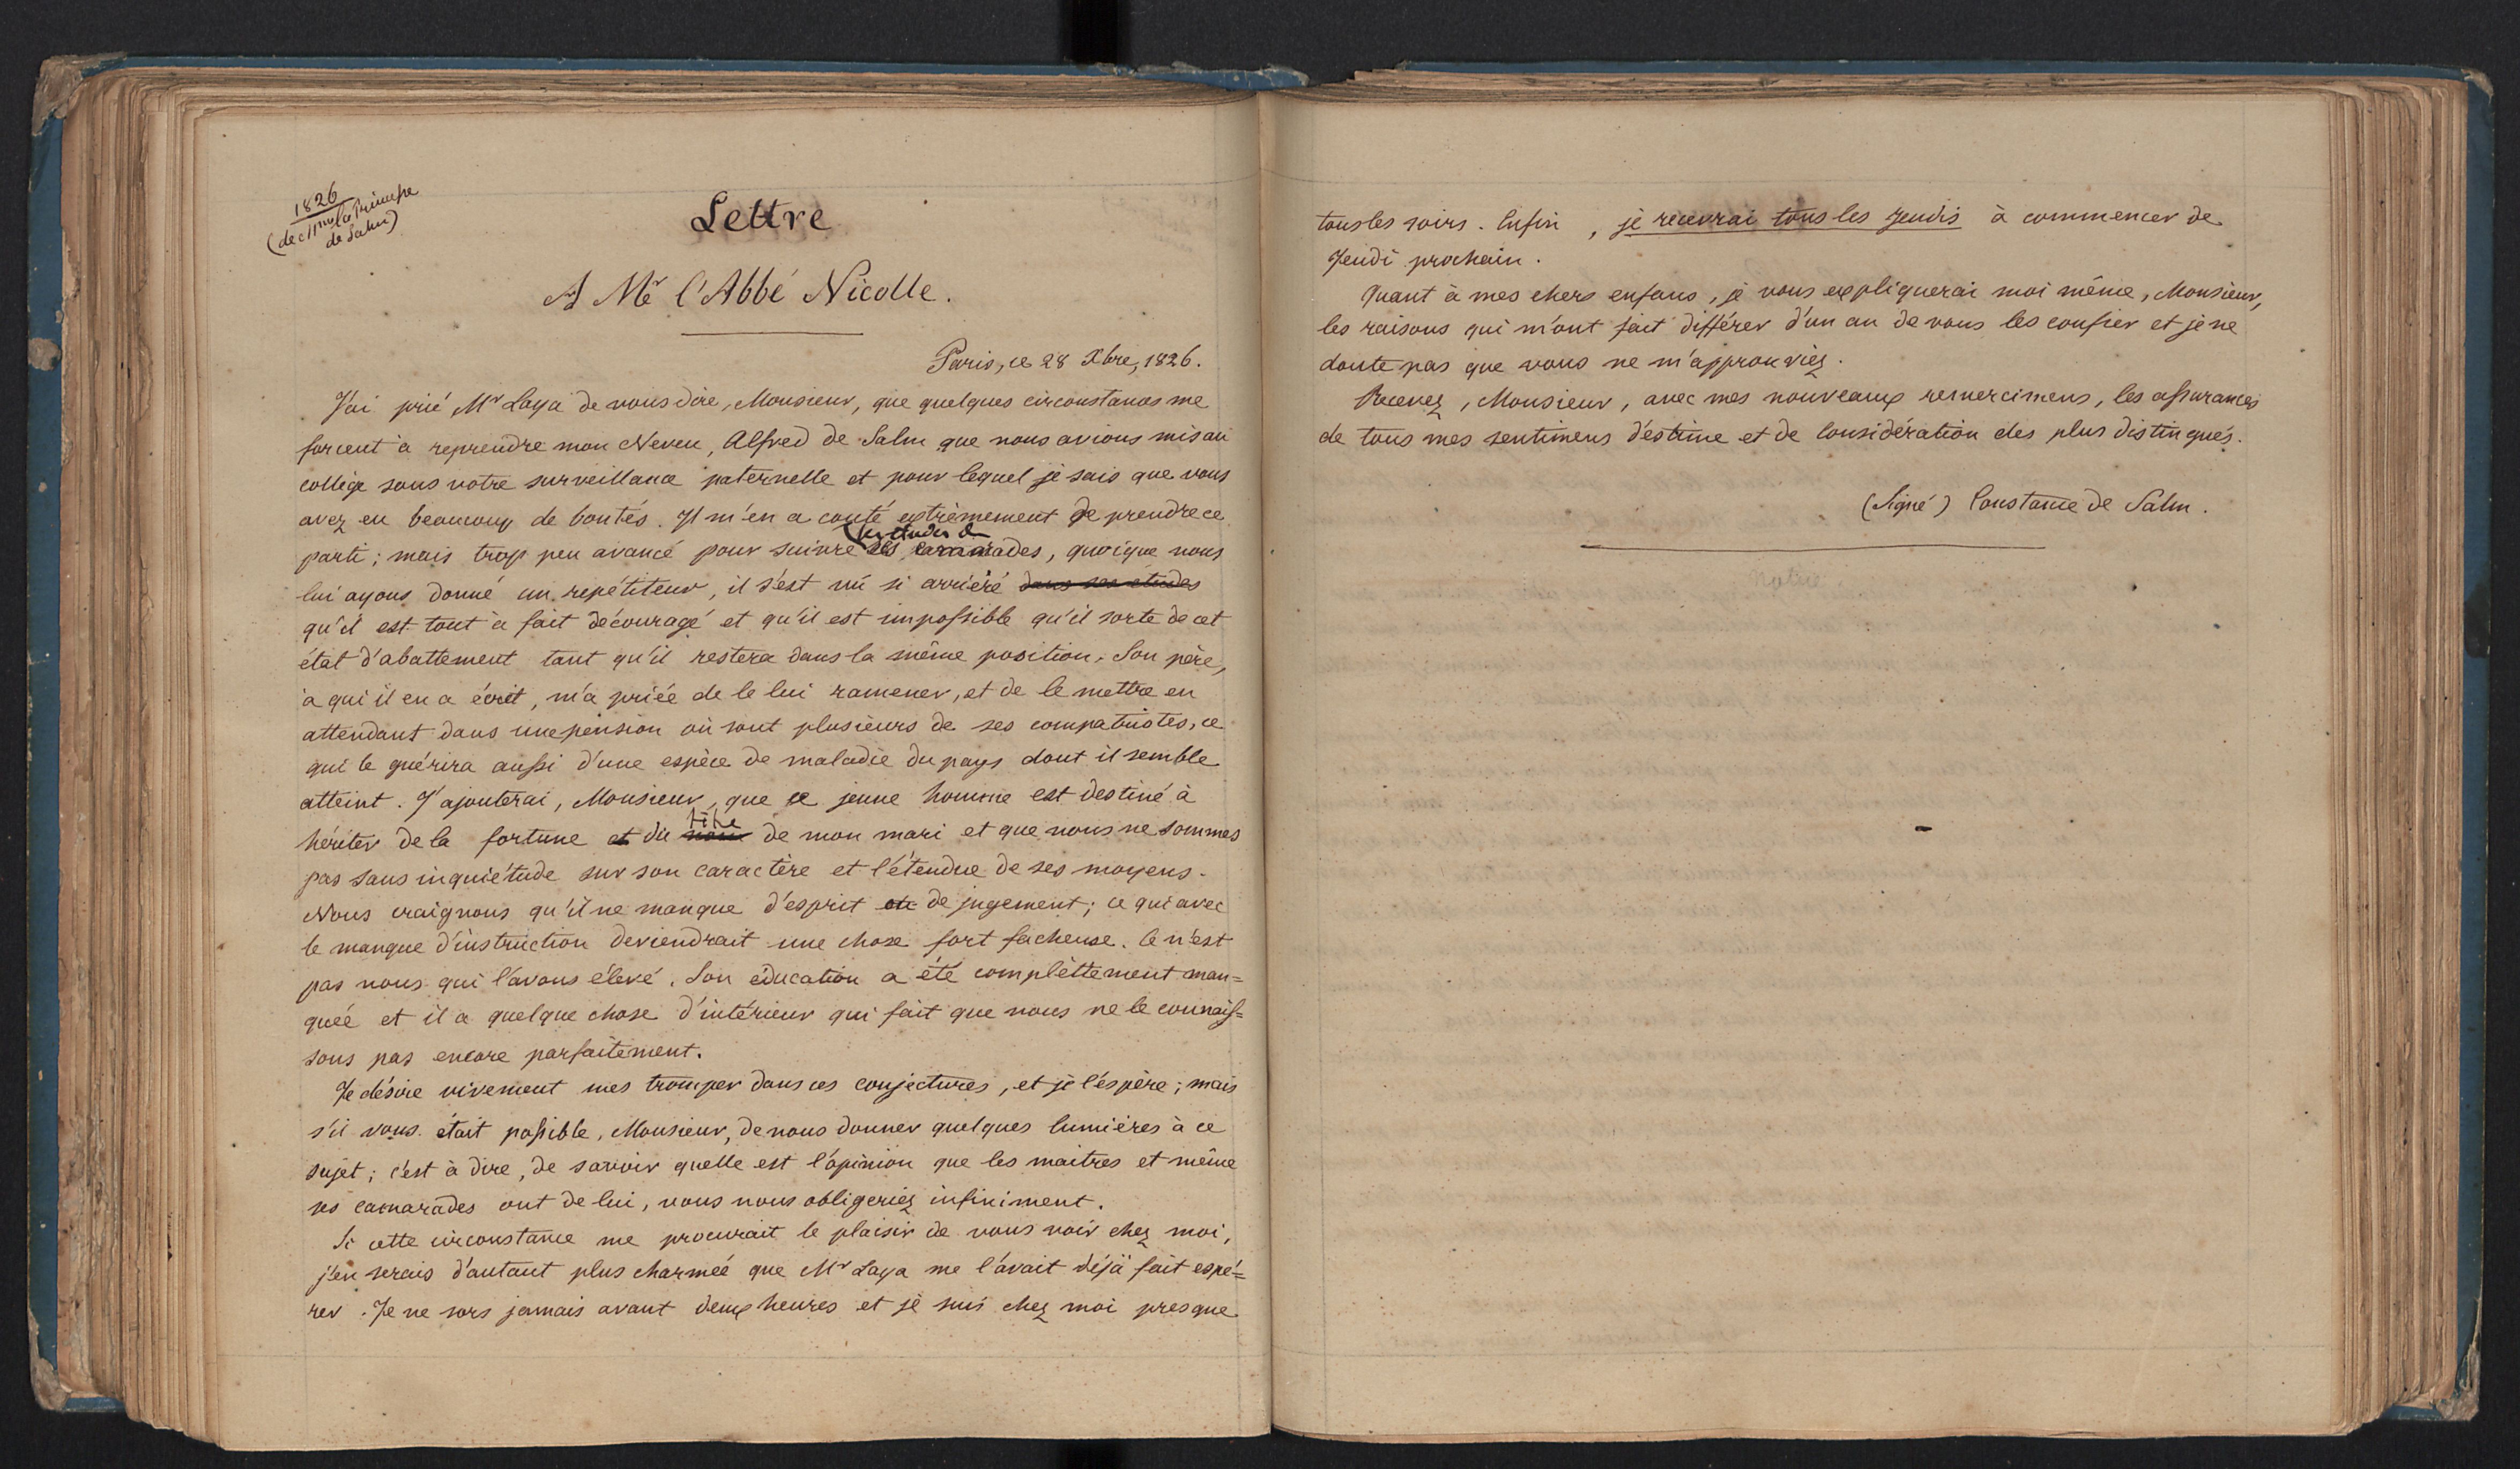 1826
(de Mme la Princesse
de Salm)
Lettre
A Mr l'Abbé Nicolle.
Paris, ce 28 Xbre, 1826.
J'ai prié Mr Laya de vous dire, Monsieur, que quelques circonstances me
forcent à reprendre mon Neveu, Alfred de Salm que nous avions mis au
collège sous votre surveillance paternelle et pour lequel je sais que vous
avez eu beaucoup de bontés. Il m'en a couté extrèmement de prendre ce
les études de
parti; mais trop peu avancé pour suivre ses camarades, quoique nous
lui ayons donné un repétiteur, il s'est vû si arriéré dans ses études
qu'il est tout à fait découragé et qu'il est impossible qu'il sorte de cet
état d'abattement tant qu'il restera dans la même position. Son père,
à qui il en a écrit, m'a priée de le lui ramener, et de le mettre en
attendant dans une pension où sont plusieurs de ses compatriotes, ce
qui le guérira aussi d'une espèce de maladie du pays dont il semble
atteint. J'ajouterai, Monsieur, que ce jeune homme est destiné à
titre
hériter de la fortune et du nom de mon mari et que nous ne sommes
pas sans inquiétude sur son caractère et l'étendue de ses moyens.
Nous craignons qu'il ne manque d'esprit et de jugement; ce qui avec
le manque d'instruction deviendrait une chose fort facheuse. Ce n'est
pas nous qui l'avons élevé. Son éducation a été complèttement man=
quée et il a quelque chose d'intérieur qui fait que nous ne le connais=
sons pas encore parfaitement.
Je désire vivement mes tromper dans ces conjectures, et je l'éspère; mais
s'il vous était possible, Monsieur, de nous donner quelques lumières à ce
sujet; c'est à dire, de savoir quelle est l'opinion que les maitres et même
ses camarades ont de lui, vous nous obligeriez infiniment.
Si cette circonstance me procurait le plaisir de vous voir chez moi,
j'en serais d'autant plus charmée que Mr Laya me l'avait déjà fait espé=
rer. Je ne sors jamais avant deux heures et je suis chez moi presque
tous les soirs. Enfin, je recevrai tous les Jeudis à commencer de
Jeudi prochain.
Quant à mes chers enfans, je vous expliquerai moi même, Monsieur,
les raisons qui m'ont fait différer d'un an de vous les confier et je ne
doute pas que vous ne m'approuviez.
Recevez, Monsieur, avec mes nouveaux remercimens, les assurances
de tous mes sentimens d'estime et de Considération des plus distingués.
(Signé) Constance de Salm.